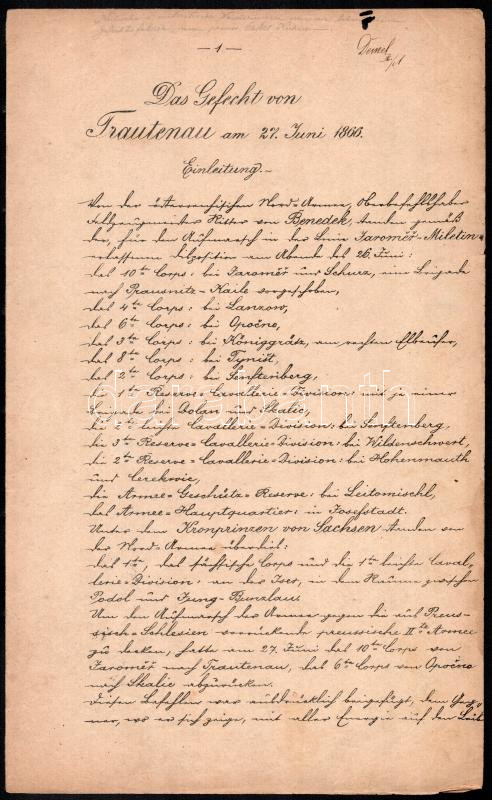 — 1 —
Demel
Das Gefecht von
Trautenau am 27. Juni 1866.
Einleitung.—
Von der österreichischen Nord=Armee, Oberbefehlshaber
Feldzeugmeister Ritter von Benedek, standen gemäß
der, für den Aufmarsch in der Linie Jaroměř=Miletin
erlassenen Disposition am Abende des 26. Juni:
das 10te Corps: bei Jaroměř und Schurz, eine Brigade
nach Prausnitz=Kaile vorgeschoben,
das 4te Corps: bei Lanzow,
das 6te Corps: bei Opočno,
das 3te Corps: bei Königgrätz, am rechten Elbeufer,
das 8te Corps: bei Tynist,
das Corps: bei Senftenberg,
die 1te Reserve=Cavallerie=Division: mit je einer
Brigade bei Dolan und Skalic,
die 2te leichte Cavallerie=Division: bei Senftenberg,
die 3te Reserve=Cavallerie=Division: bei Wildenschwert,
die 2te Reserve=Cavallerie=Division: bei Hohenmauth
und Cerekvic,
die Armee=Geschütz=Reserve: bei Leitomischl,
das Armee=Hauptquartier: in Josefstadt.
Unter dem Kronprinzen von Sachsen standen von
der Nord=Armee überdies:
das 1te, das sächsische Corps und die 1te leichte Caval-
lerie=Division: an der Iser, in dem Raume zwischen
Podol und Jung=Bunzlau.
Um den Aufmarsch der Armee gegen die aus Preus-
sisch=Schlesien vorrückende preussische IIte Armee
zu decken, hatte am 27. Juni das 10te Corps von
Jaroměř nach Trautenau, das 6te Corps von Opočno
nach Skalic abzurücken.
Diesen Befehlen war ausdrücklich beigefügt, dem Geg-
ner, wo er sich zeige, mit aller Energie auf den Leib
darabanth